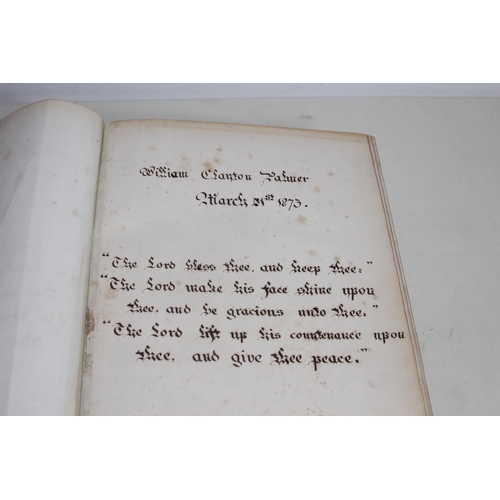 William Clayton Palmer
March 21st 1873.
"The Lord bless thee, and keep thee:"
"The Lord make his face shine upon
thee, and be gracious unto thee:"
"The Lord lift up his countenance upon
thee, and give thee peace."